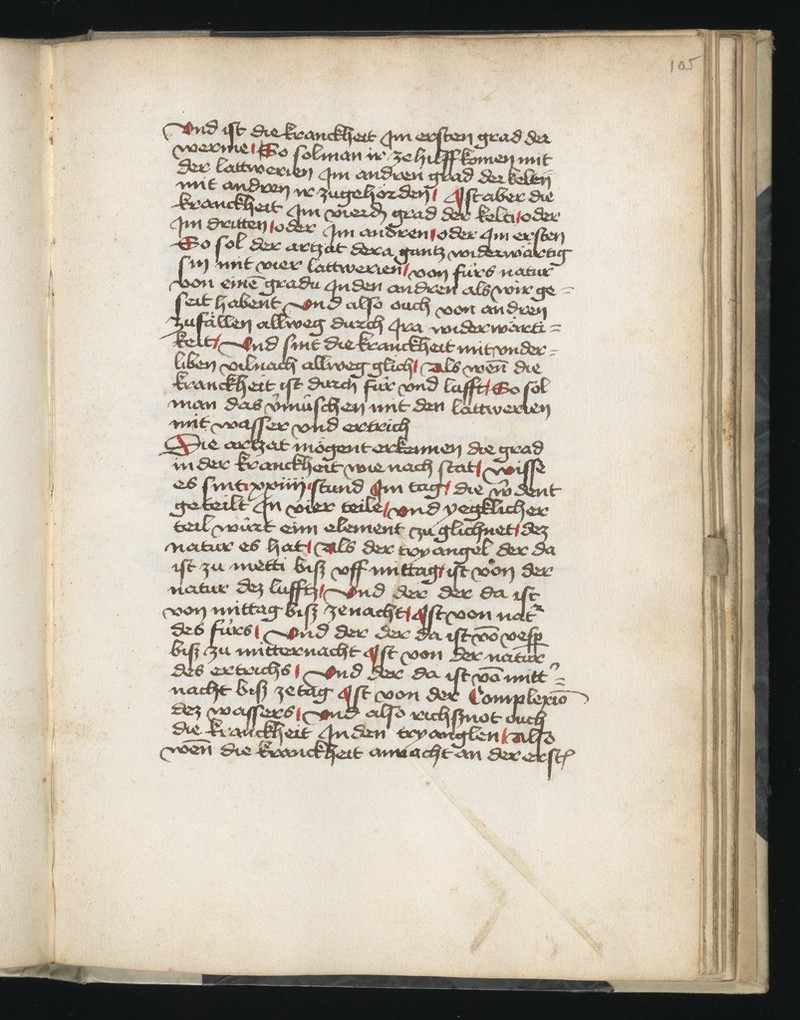 105
Vnd ist die kranckheit Im ersten grad der
werme So sol man ir ze hilff komen mit
der lattwerien Im andren grad der keltin
mit andren ir zugehörden Ist aber die
kranckheit Im vierd grad der kelti oder
Im dritten oder Im andren oder Im ersten
So sol der artzat dera gantz widerwärtig
sin mit vier lattwerien von fürs natur
von einē gradu In den andren als wir ge=
seit habent Vnd also ouch von andren
zufällen allweg durch Ira widerwärti=
keit Vnd sint die kranckheit mit vnder=
liben vilnach allweg glich Als wen̄ die
kranckheit ist durch für vnd lufft So sol
man das v̄müschen mit den lattwerien
mit wasser vnd ertrich
Die artzat mögent erkennen die grad
in der kranckheit wie nach stat wisse
es sint xxiiii stund Im tag die w̄dent
geteilt In vier teile vnd yegklicher
teil würt eim element zu glichnet dez
natur es hat Als der tryangel der da
ist zu metti bisz vff mittag ist von der
natur dez luffts Vnd der der da ist
von mittag bisz ze nacht Ist von nat͛
des fürs Vnd der der da ist vō vesp̄
bisz zu mitternacht Ist von der natur
des ertrichs Vnd der da ist vō mitt͛=
nacht bisz ze tag Ist von der Complexiō
dez wassers Vnd also richsznot ouch
die kranckheit In den tryanglen Also
wen̄ die kranckheit anuacht an der erst